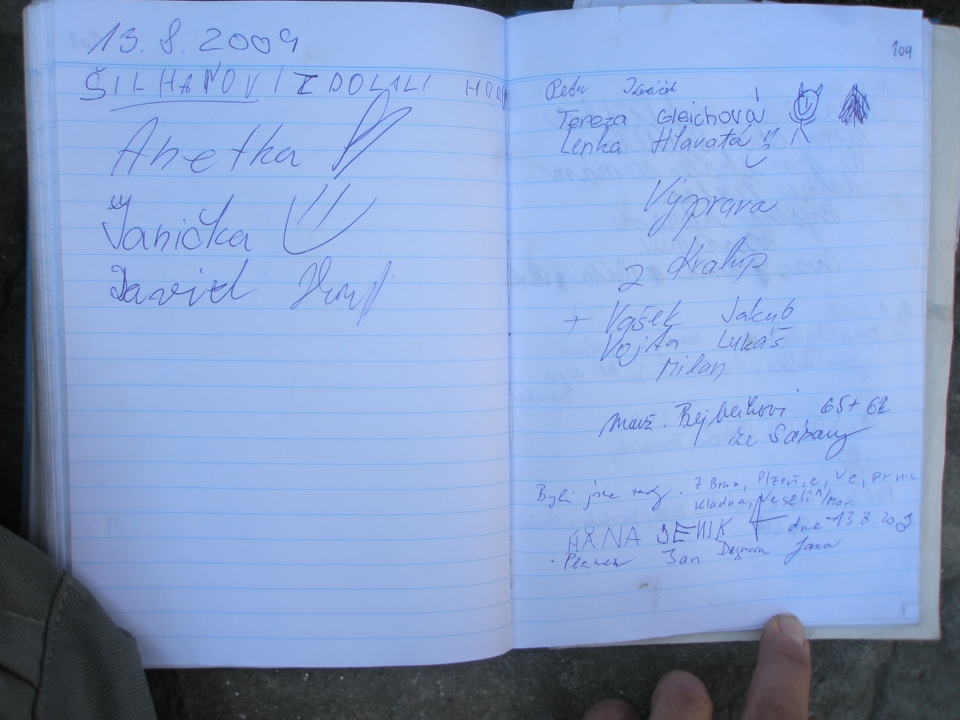 13. 8. 2009
ŠILHANOVI ZDOLALI HORU
Anetka
Janička
David
109
Petr
Tereza Gleichová
Lenka Hlavatá
Výprava
z Kralup
+ Vašek Jakub
Vojta Lukáš
Milan
manž. Bejbčkovi 65+62
ze Sázavy
Byli jsme tady. Z Brna, Plzeň
Kladna, Veselí n/Mor.
HANA JENIK dne 13 8 2009
Jan Dagmar Jana